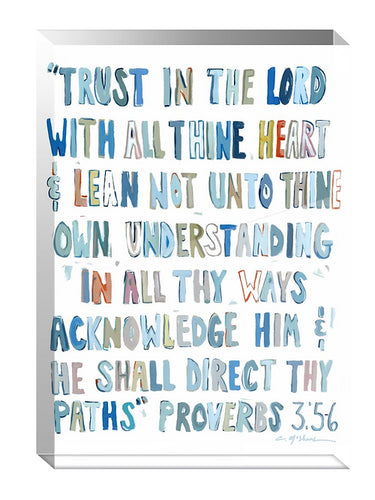 "TRUST IN THE LORD
WITH ALL THINE HEART
& LEAN NOT UNTO THINE
OWN UNDERSTANDING
IN ALL THY WAYS
ACKNOWLEDGE HIM &
HE SHALL DIRECT THY
PATHS" PROVERBS 3:5-6